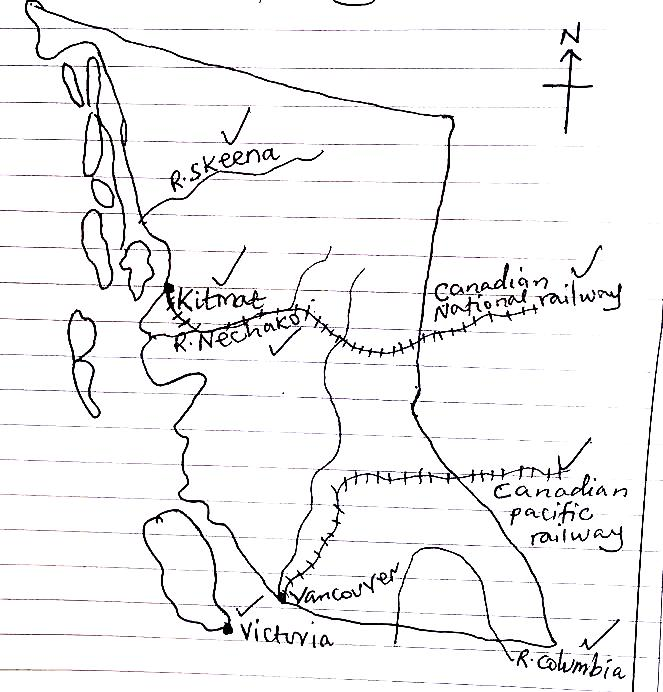 N
R.Skeena
Kitmat
R.Nechako
Canadian
National railway
Canadian
pacific
railway
Vancouver
Victoria
R.columbia